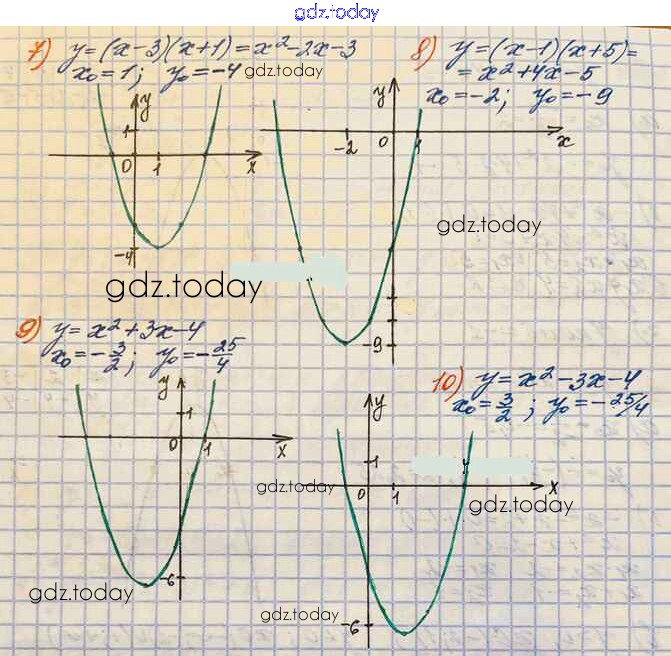 gdz.today
7) y=(x-3)(x+1)=x²-2x-3
x₀=1; y₀=-4 gdz.today
8) y=(x-1)(x+5)=
=x²+4x-5
x₀=-2; y₀=-9
y
1
0 1 x
-4
y
-2 0 1 x
-9
gdz.today
gdz.today
9) y=x²+3x-4
x₀=-3/2; y₀=-25/4
y
1
0 1 x
-6
gdz.today
10) y=x²-3x-4
x₀=3/2; y₀=-25/4
y
1
gdz.today 0 1 x
gdz.today
gdz.today
-6